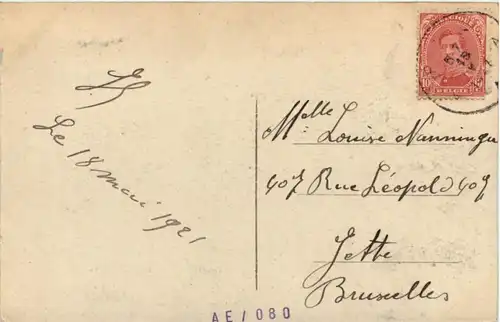 Le 18 mai 1921
Melle Louise
407 Rue Léopold 407
Jette
Bruxelles
BELGIE
AE/080